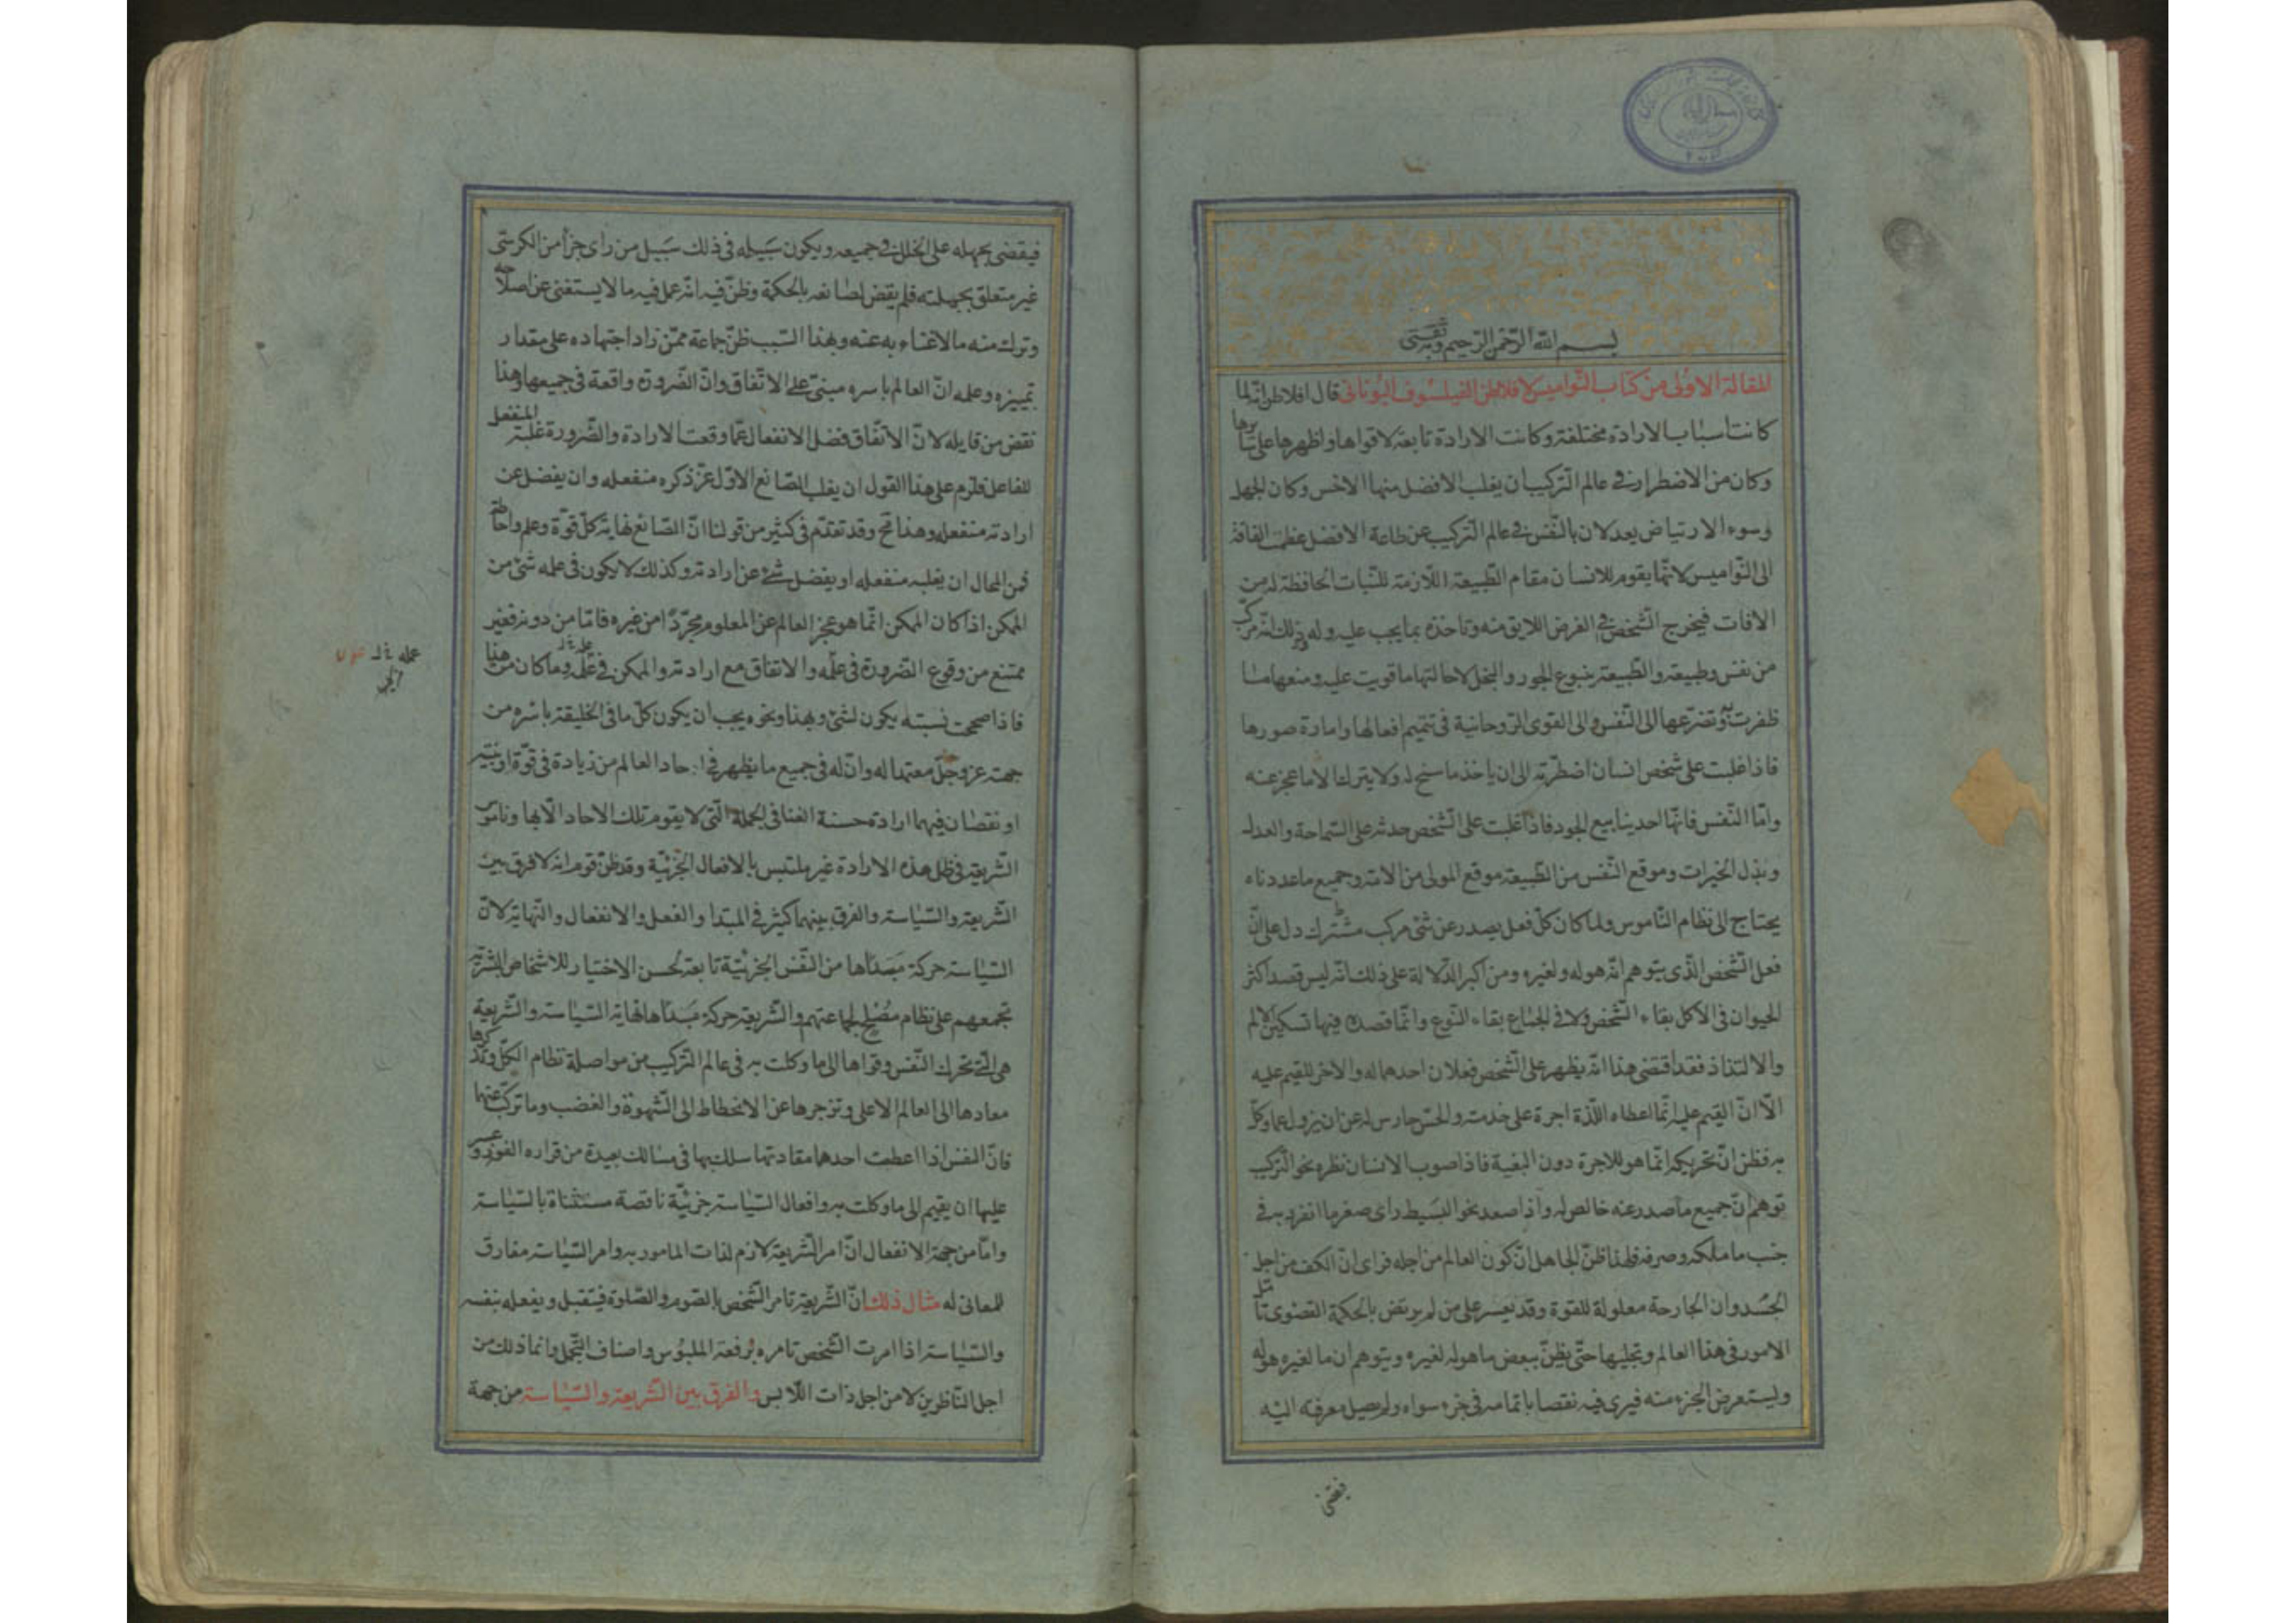 بسم الله الرحمن الرحيم وبه ثقتى
المقالة الاولى من كتاب النواميس لافلاطن الفيلسوف اليونانى قال افلاطن انه لما
كانت اسباب الارادة مختلفة وكانت الارادة تابعة لاقواها واظهرها على سايرها
وكان من الاضطرار فى عالم التركيب ان يغلب الافضل منها الاخس وكان الجهل
وسوء الارتياض يعدلان بالنفس فى عالم التركيب عن طاعة الافضل عظمت الفاقة
الى النواميس لانها يقوم للانسان مقام الطبيعة اللازمة للنبات الحافظة له من
الافات فيخرج الشخص فى الغرض اللايق منه وتاخذه بما يجب عليه وله وذلك انه مركب
من نفس وطبيعة والطبيعة ينبوع الجور والبخل لاحالتها ما قويت عليه ومنعها ما
ظفرت به وتضرعها الى النفس والى القوى الروحانية فى تتميم افعالها وامارة صورها
فاذا غلبت على شخص انسان اضطرته الى ان ياخذ ما سنح له ولا يترك الا ما عجز عنه
واما النفس فانها احد ينابيع الجود فاذا غلبت على الشخص حدثه على السماحة والعدل
وبذل الخيرات وموقع النفس من الطبيعة موقع المولى من الامة وجميع ما عددناه
يحتاج الى نظام الناموس ولما كان كل فعل يصدر عن شئ مركب مشترك دل على ان
فعل الشخص الذى يتوهم انه هو له ولغيره ومن اكبر الدلالة على ذلك انه ليس قصد اكثر
الحيوان فى الاكل بقاء الشخص ولا فى الجماع بقاء النوع وانما قصده فيها تسكين الالم
والالتذاذ فقد اقتضى هذا انه يظهر على الشخص فعلان احدهما له والاخر للقيم عليه
الا ان القيم عليه انما اعطاه اللذة اجرة على خدمته والحس حارس له عن ان يزول عما وكل
به فظن ان تحريكه انما هو للاجرة دون البغية فاذا صوب الانسان نظره نحو التركيب
توهم ان جميع ما صدر عنه خالص له واذا صعد نحو البسيط راى صغر ما انفرد به فى
جنب ما ملكه وصرفه فلهذا ظن الجاهل ان كون العالم من اجله فراى ان الكف من اجل
الجسد وان الجارحة معلولة للقوة وقد يعسر على من لم يرتض بالحكمة القصوى تامل
الامور فى هذا العالم وتجليها حتى يظن ببعض ما هو له لغيره ويتوهم ان ما لغيره هو له
وليستعرض الجزء منه فيرى فيه نقصا باتمامه فى جزء سواه ولم يصل معرفته اليه
فيقضى
فيقضى بجهله على الخلل فى جميعه ويكون سبيله فى ذلك سبيل من راى جزأ من الكرسى
غير متعلق بجملته فلم يقض لصانعه بالحكمة وظن فيه انه عمل فيه ما لا يستغنى عن اصلاحه
وترك منه ما لا غناء به عنه وبهذا السبب ظن جماعة ممن زاد اجتهاده على مقدار
تمييزه وعلمه ان العالم باسره مبنى على الاتفاق وان الضرورة واقعة فى جميعها وهذا
نقض من قايله لان الاتفاق فضل الانفعال عما وقعت الارادة والضرورة غلبة المنفعل
للفاعل فلزم على هذا القول ان يغلب الصانع الاول عز ذكره منفعله وان يفضل عن
ارادته منفعله وهذا قبح وقد تقدم فى كثير من قولنا ان الصانع نهاية كل قوة وعلم واحاطة
فمن المحال ان يغلبه منفعله او يفضل شئ عن ارادته وكذلك لا يكون فى علمه شئ من
الممكن اذا كان الممكن انما هو عجز العالم عن المعلوم مجردا من غيره فاما من دونه فغير
ممتنع من وقوع الضرورة فى علمه والاتفاق مع ارادته والممكن فى علمه وما كان من هنا
فاذا صححت نسبته يكون لشئ وبهذا ونحوه يجب ان يكون كل ما فى الخليقة باسره من
جهته عز وجل معتمدا له وان له فى جميع ما يظهر فى احاد العالم من زيادة فى قوة او بنية
او نقصان فيهما ارادة حسنة الغنا فى الجملة التى لا يقوم تلك الاحاد الا بها وناموس
الشريعة فى ظل هذه الارادة غير ملتبس بالافعال الجزئية وقد ظن قوم انه لا فرق بين
الشريعة والسياسة والفرق بينهما كثير فى المبتدا والفعل والانفعال والنهاية لان
السياسة حركة مبدأها من النفس الجزئية تابعة لحسن الاختيار للاشخاص البشرية
تجمعهم على نظام مصلح لجماعتهم والشريعة حركة مبدأها نهاية السياسة والشريعة
هى التى تحرك النفس وقواها الى ما وكلت به فى عالم التركيب من مواصلة نظام الكل وتذكرها
معادها الى العالم الاعلى وتزجرها عن الانحطاط الى الشهوة والغضب وما تركب عنهما
فان النفس اذا اعطت احدهما مقادتها سلك بها فى مسالك بعيدة من قراره الفوز وعسر
عليها ان يقيم الى ما وكلت به وافعال السياسة جزئية ناقصة مستثناة بالسياسة
واما من جهة الانفعال ان امر الشريعة لازم لذات المامور به وامر السياسة مفارق
للمعانى له مثال ذلك ان الشريعة تامر الشخص بالصوم والصلوة فيتقبل ويفعله بنفسه
والسياسة اذا امرت الشخص تامره برفعة الملبوس واصناف التجمل وانما ذلك من
اجل الناظرين لا من اجل ذات اللابس والفرق بين الشريعة والسياسة من جهة